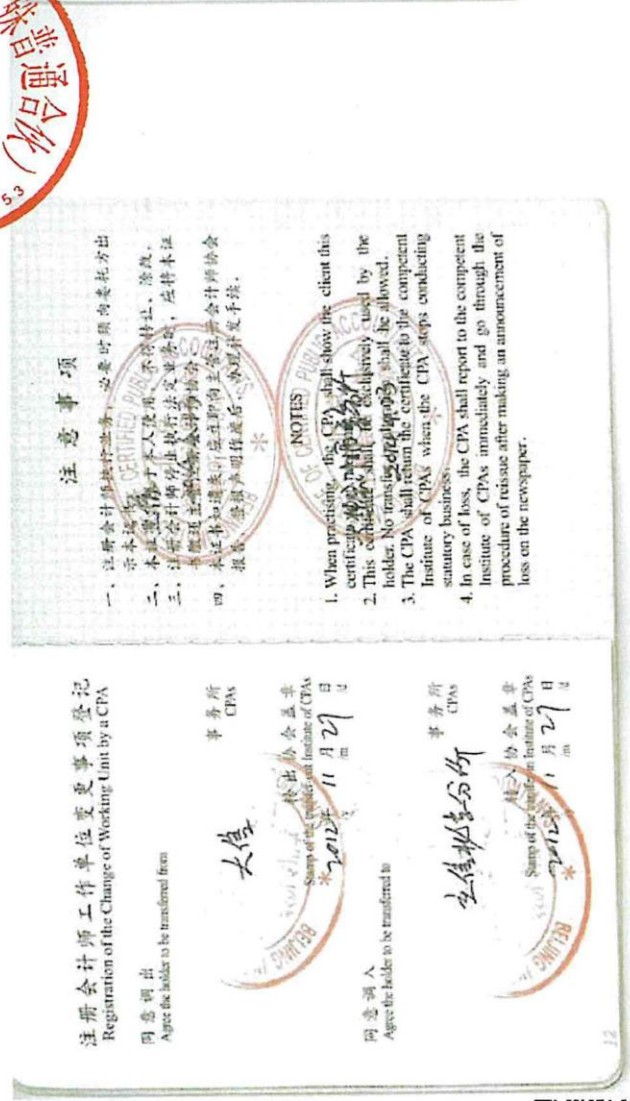 注册会计师工作单位变更事项登记
Registration of the Change of Working Unit by a CPA
同意调出
Agree the holder to be transferred from
大信
事务所
CPAs
转出协会盖章
Stamp of the transfer-out Institute of CPAs
2012年 11 月 27 日
/m /d
同意调入
Agree the holder to be transferred to
事务所
CPAs
转入协会盖章
Stamp of the transfer-in Institute of CPAs
2012年 11 月 27 日
/m /d
BEIJING
BEIJING
12
注意事项
一、注册会计师执行业务，必要时须向委托方出
示本证书。
二、本证书只限于本人使用，不得转让、涂改。
三、注册会计师停止执行法定业务时，应将本证
书缴还主管注册会计师协会。
四、本证书如遗失，应立即向主管注册会计师协会
报告，登报声明作废后，办理补发手续。
CERTIFIED PUBLIC
NOTES
1. When practising, the CPA shall show the client this
certificate
2. This certificate shall be exclusively used by the
holder. No transfer shall be allowed.
3. The CPA shall return the certificate to the competent
Institute of CPAs when the CPA stops conducting
statutory business.
4. In case of loss, the CPA shall report to the competent
Institute of CPAs immediately and go through the
procedure of reissue after making an announcement of
loss on the newspaper.
普通合伙)